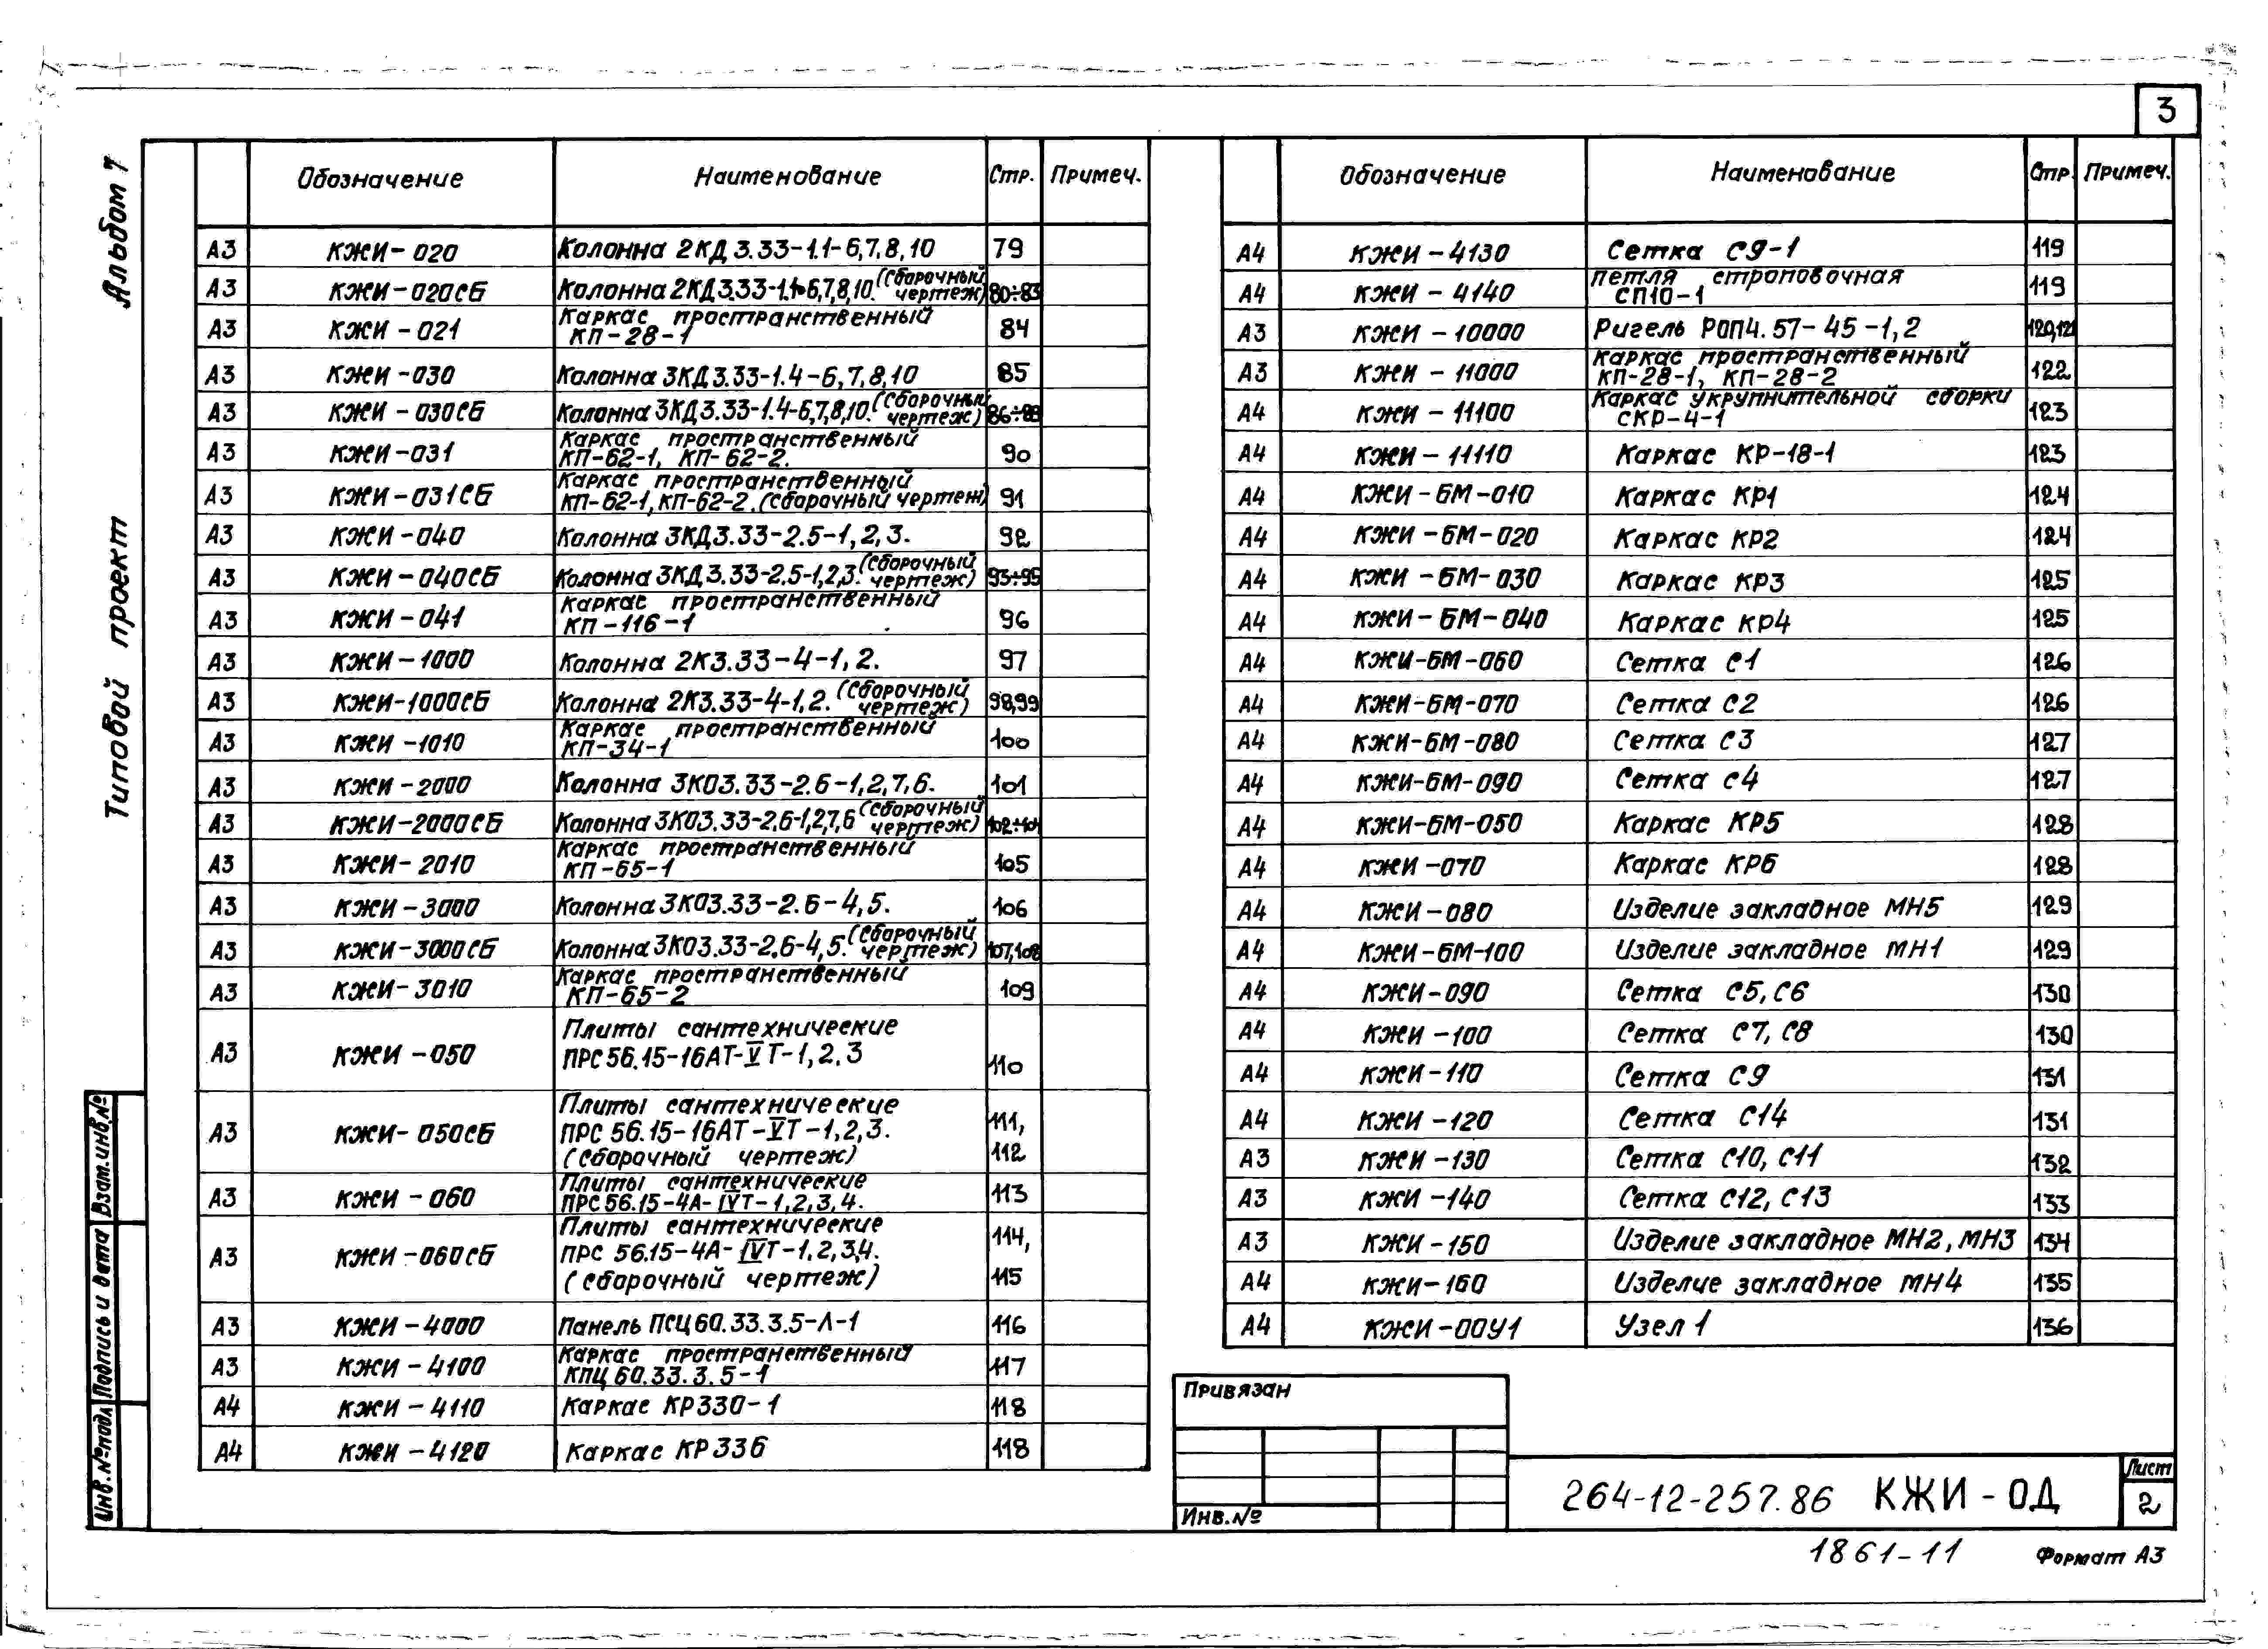 3
Альбом 7
Типовой проект
Обозначение Наименование Стр. Примеч.
А3 КЖИ-020 Колонна 2КД 3.33-1.1-6,7,8,10 79
А3 КЖИ-020СБ Колонна 2КД3.33-1.1-6,7,8,10. (Сборочный чертеж) 80÷83
А3 КЖИ-021 Каркас пространственный
КП-28-1 84
А3 КЖИ-030 Колонна 3КД3.33-1.4-6,7,8,10 85
А3 КЖИ-030СБ Колонна 3КД3.33-1.4-6,7,8,10. (Сборочный чертеж)
А3 КЖИ-031 Каркас пространственный
КП-62-1, КП-62-2. 90
А3 КЖИ-031СБ Каркас пространственный
КП-62-1, КП-62-2. (Сборочный чертеж) 91
А3 КЖИ-040 Колонна 3КД3.33-2.5-1,2,3. 92
А3 КЖИ-040СБ Колонна 3КД3.33-2.5-1,2,3. (Сборочный чертеж) 93÷95
А3 КЖИ-041 Каркас пространственный
КП-116-1 96
А3 КЖИ-1000 Колонна 2К3.33-4-1,2. 97
А3 КЖИ-1000СБ Колонна 2К3.33-4-1,2. (Сборочный чертеж) 98,99
А3 КЖИ-1010 Каркас пространственный
КП-34-1 100
А3 КЖИ-2000 Колонна 3КО3.33-2.6-1,2,7,6. 101
А3 КЖИ-2000СБ Колонна 3КО3.33-2.6-1,2,7,6 (Сборочный чертеж)
А3 КЖИ-2010 Каркас пространственный
КП-65-1 105
А3 КЖИ-3000 Колонна 3КО3.33-2.6-4,5. 106
А3 КЖИ-3000СБ Колонна 3КО3.33-2.6-4,5. (Сборочный чертеж) 107,108
А3 КЖИ-3010 Каркас пространственный
КП-65-2 109
А3 КЖИ-050 Плиты сантехнические
ПРС 56.15-16АТ-VТ-1,2.3 110
А3 КЖИ-050СБ Плиты сантехнические
ПРС 56.15-16АТ-VТ-1,2,3.
(сборочный чертеж) 111, 112
А3 КЖИ-060 Плиты сантехнические
ПРС 56.15-4А-IVТ-1,2,3,4. 113
А3 КЖИ-060СБ Плиты сантехнические
ПРС 56.15-4А-IVТ-1,2,3,4.
(сборочный чертеж) 114, 115
А3 КЖИ-4000 Панель ПСЦ 60.33.3.5-Л-1 116
А3 КЖИ-4100 Каркас пространственный
КПЦ 60.33.3.5-1 117
А4 КЖИ-4110 Каркас КР330-1 118
А4 КЖИ-4120 Каркас КР336 118
Обозначение Наименование Стр. Примеч.
А4 КЖИ-4130 Сетка С9-1 119
А4 КЖИ-4140 петля строповочная
СП10-1 119
А3 КЖИ-10000 Ригель РОП4.57-45-1,2 120,121
А3 КЖИ-11000 каркас пространственный
КП-28-1, КП-28-2 122
А4 КЖИ-11100 Каркас укрупнительной сборки
СКР-4-1 123
А4 КЖИ-11110 Каркас КР-18-1 123
А4 КЖИ-БМ-010 Каркас КР1 124
А4 КЖИ-БМ-020 Каркас КР2 124
А4 КЖИ-БМ-030 Каркас КР3 125
А4 КЖИ-БМ-040 Каркас КР4 125
А4 КЖИ-БМ-060 Сетка С1 126
А4 КЖИ-БМ-070 Сетка С2 126
А4 КЖИ-БМ-080 Сетка С3 127
А4 КЖИ-БМ-090 Сетка С4 127
А4 КЖИ-БМ-050 Каркас КР5 128
А4 КЖИ-070 Каркас КР6 128
А4 КЖИ-080 Изделие закладное МН5 129
А4 КЖИ-БМ-100 Изделие закладное МН1 129
А4 КЖИ-090 Сетка С5, С6 130
А4 КЖИ-100 Сетка С7, С8 130
А4 КЖИ-110 Сетка С9 131
А4 КЖИ-120 Сетка С14 131
А3 КЖИ-130 Сетка С10, С11 132
А3 КЖИ-140 Сетка С12, С13 133
А3 КЖИ-150 Изделие закладное МН2, МН3 134
А4 КЖИ-160 Изделие закладное МН4 135
А4 КЖИ-00У1 Узел 1 136
Привязан
Инв.№
264-12-257.86 КЖИ-ОД
Лист
2
1861-11
Формат А3
Взам.инв.№
Подпись и дата
Инв.№подл